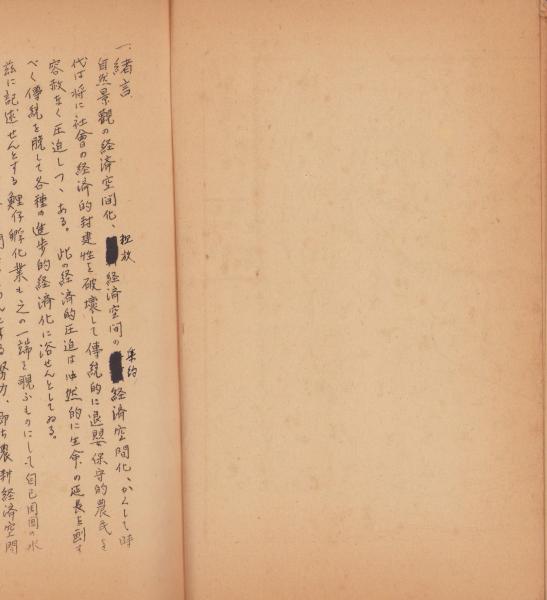 一、緒言
自然景観の経済空間化、粗放経済空間の集約経済空間化、かくして時
代は将に社會の経済的封建性を破壊して傳統的に退嬰保守的農民を
容赦なく圧迫しつゝある。此の経済的圧迫は必然的に生命の延長を劃す
べく傳統を脱して各種の進歩的経済化に浴せんとしてゐる。
茲に記述せんとする鯉仔孵化業も之の一端を覗ふものにして自己周囲の水
努力、即ち農耕経済空間